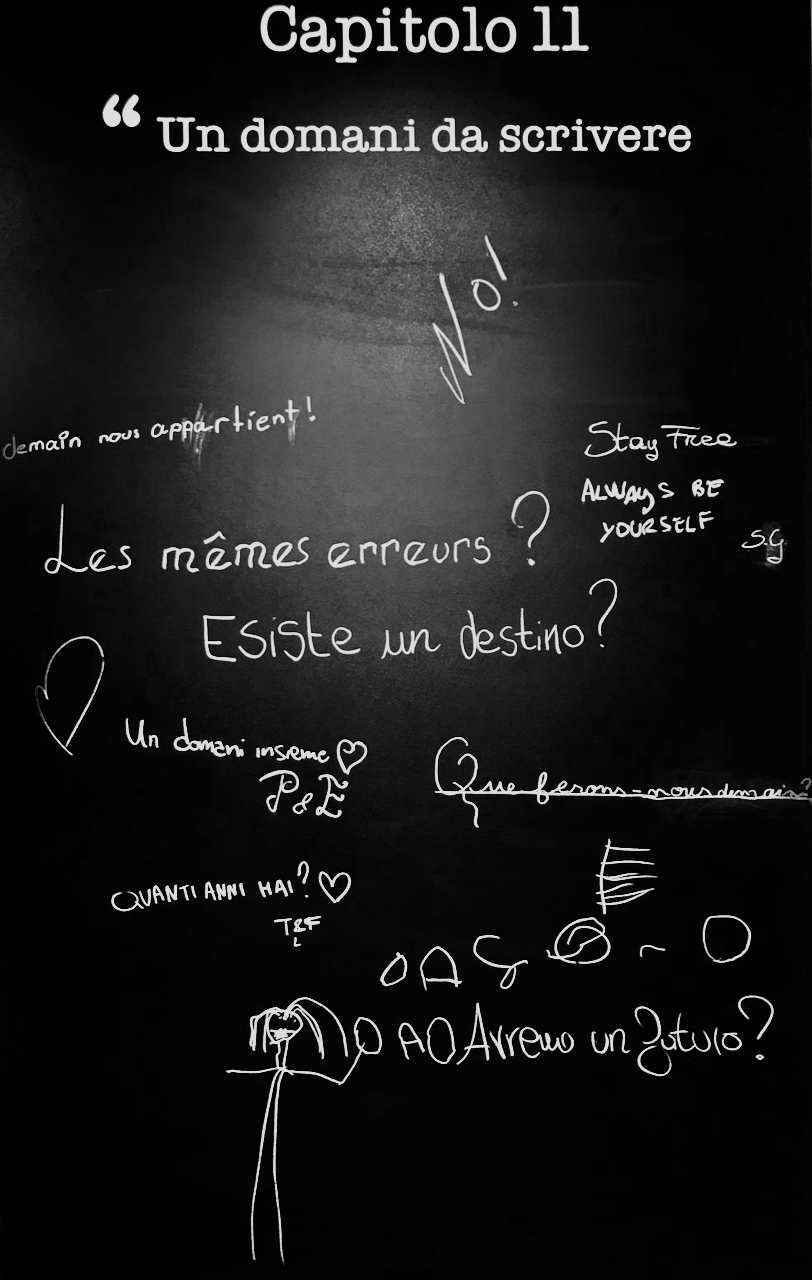 Capitolo 11
“ Un domani da scrivere
No!
demain nous appartient!
Stay Free
ALWAYS BE
YOURSELF
S.G
Les mêmes erreurs ?
Esiste un destino?
Un domani insieme
P & E
Que ferons-nous demain?
QUANTI ANNI HAI?
T&F
Avremo un futuro?